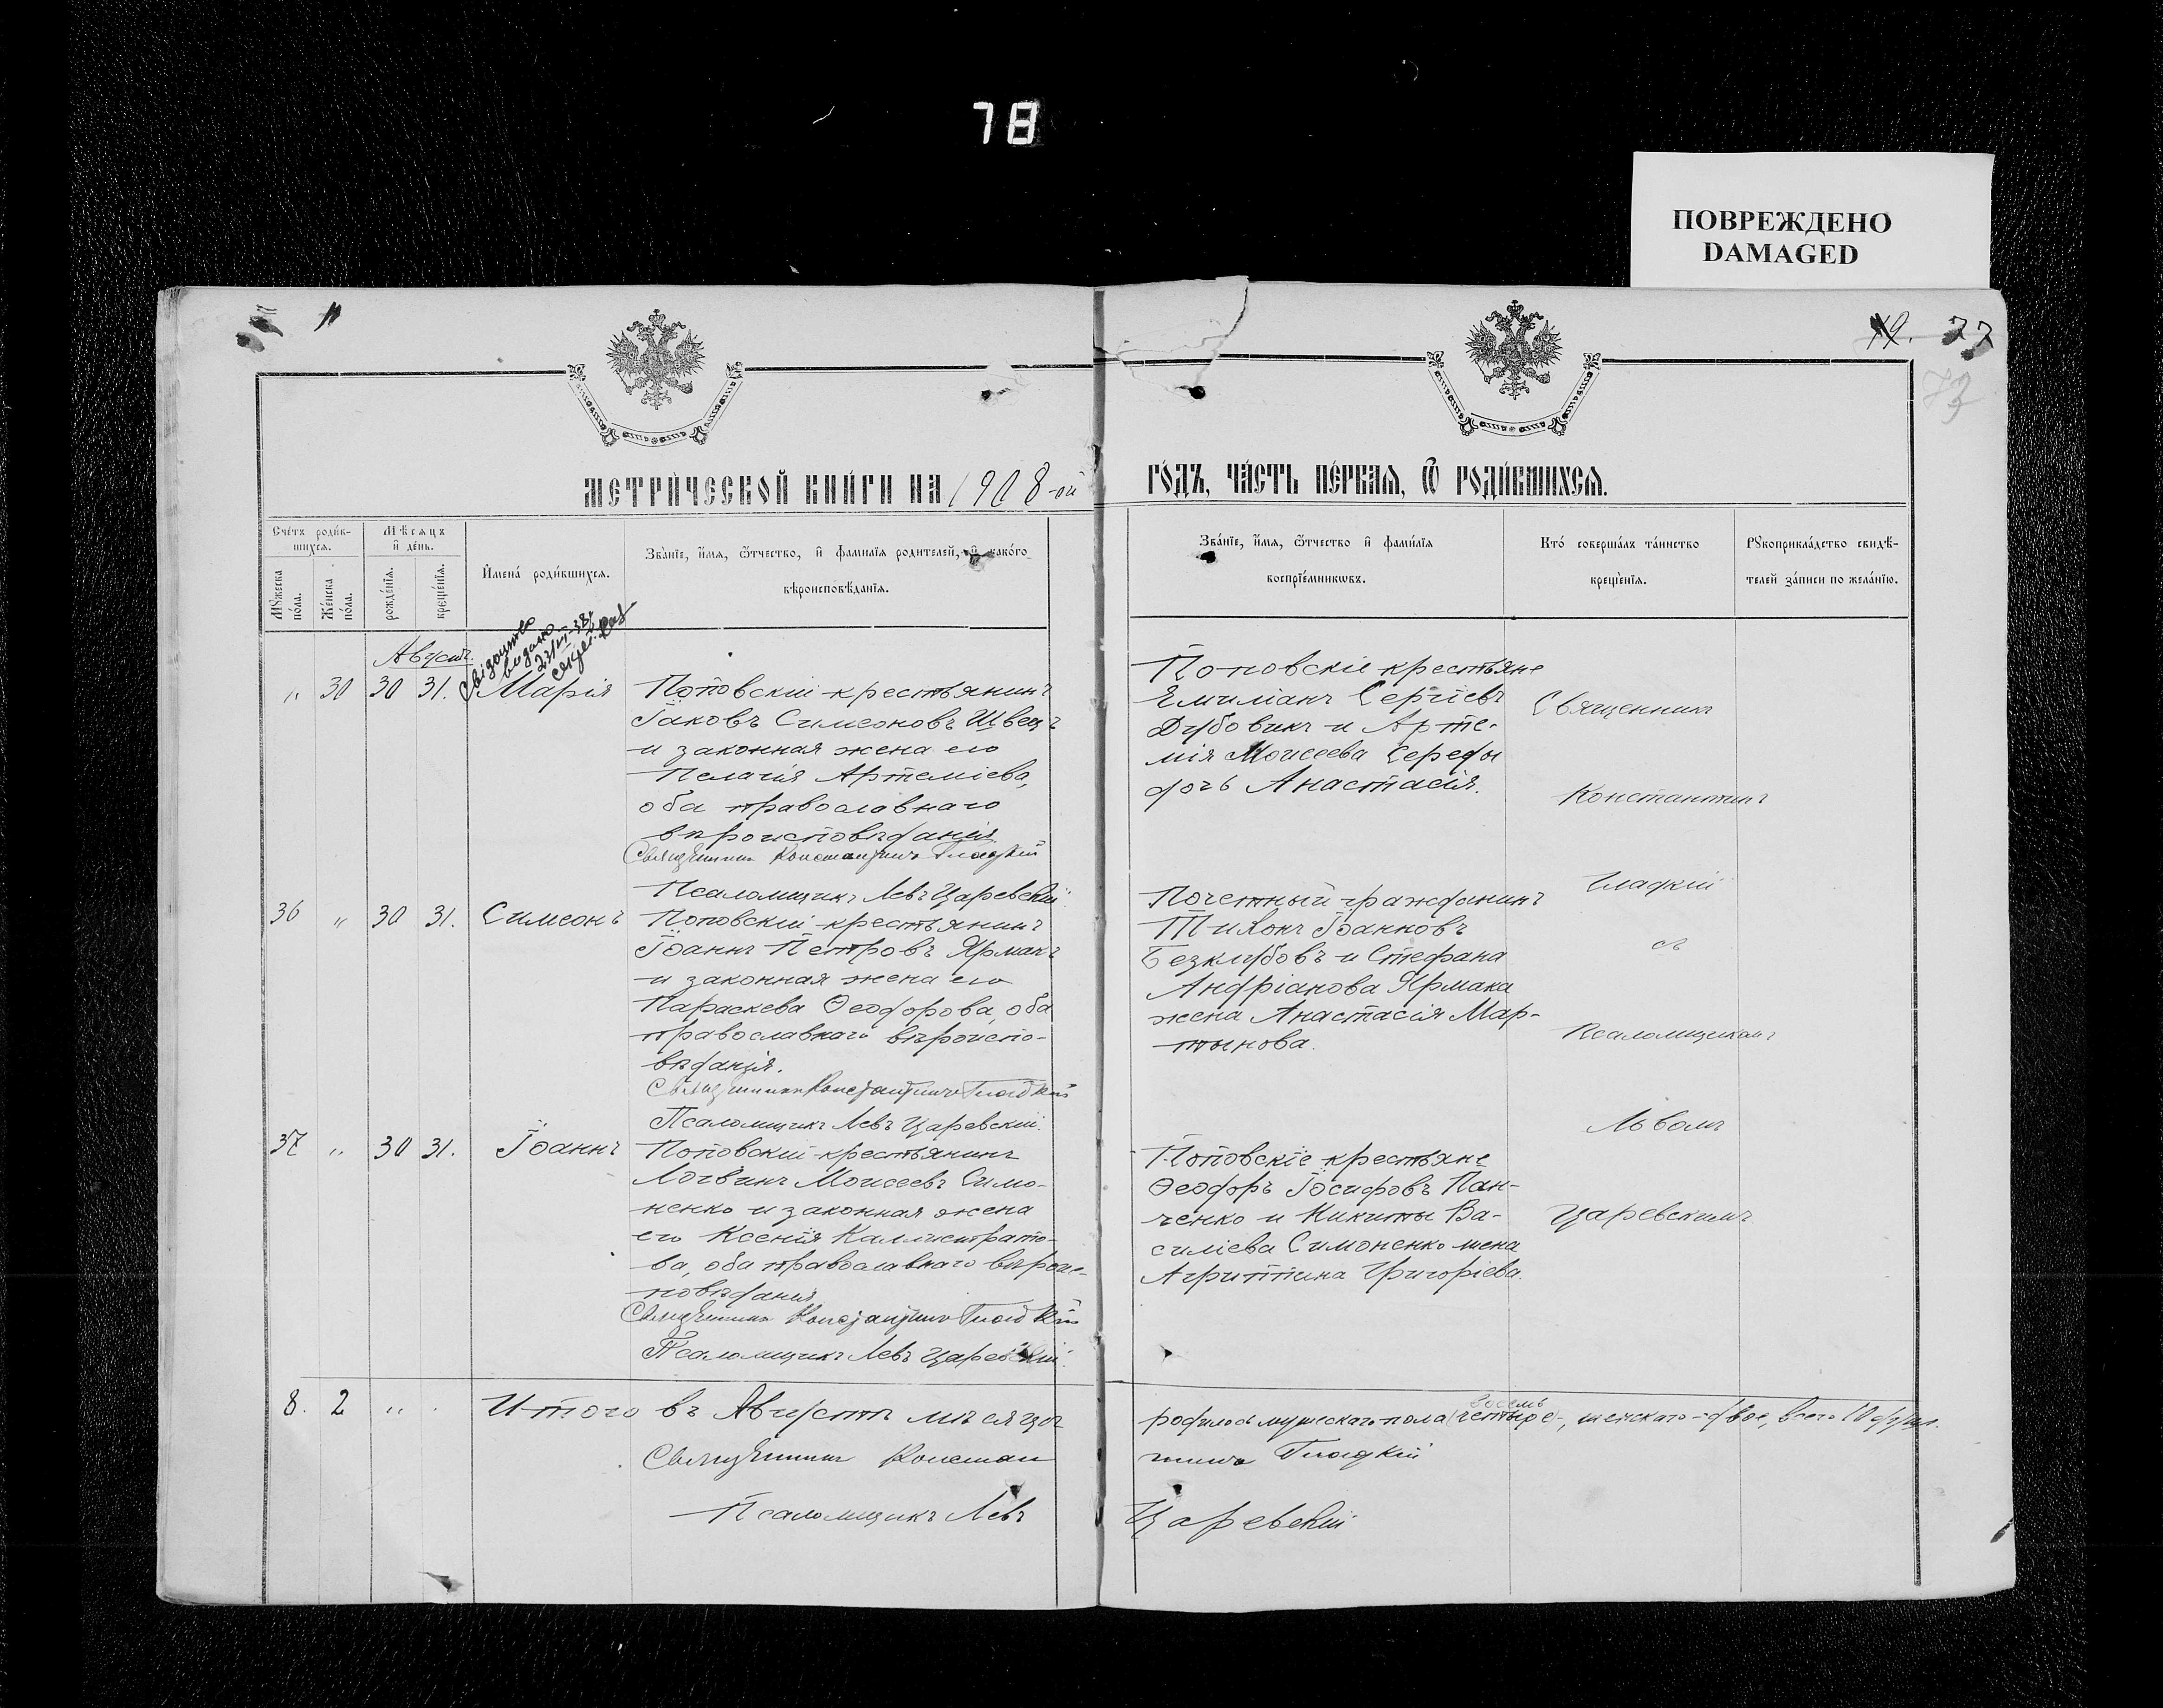 78
ПОВРЕЖДЕНО
DAMAGED
49. 77
73
МЕТРИ́ЧЕСКОЙ КНИ́ГИ НА 1908-ой
ГО́ДЪ, ЧА́СТЬ ПЕ́РВАЯ, Ѿ РОДИ́ВШИХСЯ.
Сче́тъ роди́в-
шихся.
Мѣсяцъ
и҆ де́нь.
Мꙋжеска
по́ла.
Же́нска
по́ла.
рожде́нїя.
креще́нїя.
И҆мена́ роди́вшихся.
Зва́нїе, и҆́мя, ѻ҆́тчество, и҆ фами́лїя родителей, и҆ како́го
вѣроисповѣ́данїя.
Зва́нїе, и҆́мя, ѻ҆́тчество и҆ фами́лїя
воспрїе́мникѡвъ.
Кто́ соверша́лъ та́инство
креще́нїя.
Рꙋкоприкла́дство свидѣ́-
телей за́писи по жела́нїю.
Августъ.
Свідоцтво
видано
" 30 30 31. Марія
Поповскій крестьянинъ
Іаковъ Симеоновъ Швецъ
и законная жена его
Пелагія Артеміева,
оба православнаго
вѣроисповѣданія
Священникъ Константинъ Гладкій
Псаломщикъ Левъ Царевскій.
Поповскіе крестьяне
Емиліанъ Сергіевъ
Дубовикъ и Арте-
мія Моисеева Середы
дочь Анастасія.
Священникъ
Константинъ
Гладкій
съ
Псаломщикомъ
Львомъ
Царевскимъ
36 " 30 31. Симеонъ
Поповскій крестьянинъ
Іоаннъ Петровъ Ярмакъ
и законная жена его
Параскева Ѳеодорова, оба
православнаго вѣроиспо-
вѣданія.
Священникъ Константинъ Гладкій
Псаломщикъ Левъ Царевскій.
Почетный гражданинъ
Тихонъ Іоанновъ
Безклубовъ и Стефана
Андріанова Ярмака
жена Анастасія Мар-
тынова.
37 " 30 31. Іоаннъ
Поповскій крестьянинъ
Логвинъ Моисеевъ Симо-
ненко и законная жена
его Ксенія Каллистрато-
ва, оба православнаго вѣроис-
повѣданія
Священникъ Константинъ Гладкій
Псаломщикъ Левъ Царевскій.
Поповскіе крестьяне
Ѳеодоръ Іосифовъ Пан-
ченко и Никиты Ва-
силіева Симоненко жена
Агриппина Григоріева.
8. 2 " . Итого въ Августѣ мѣсяцѣ родилось мужескаго пола (четыре) восемь, женскаго - двое, всего 10 душъ.
Священникъ Константинъ Гладкій
Псаломщикъ Левъ Царевскій